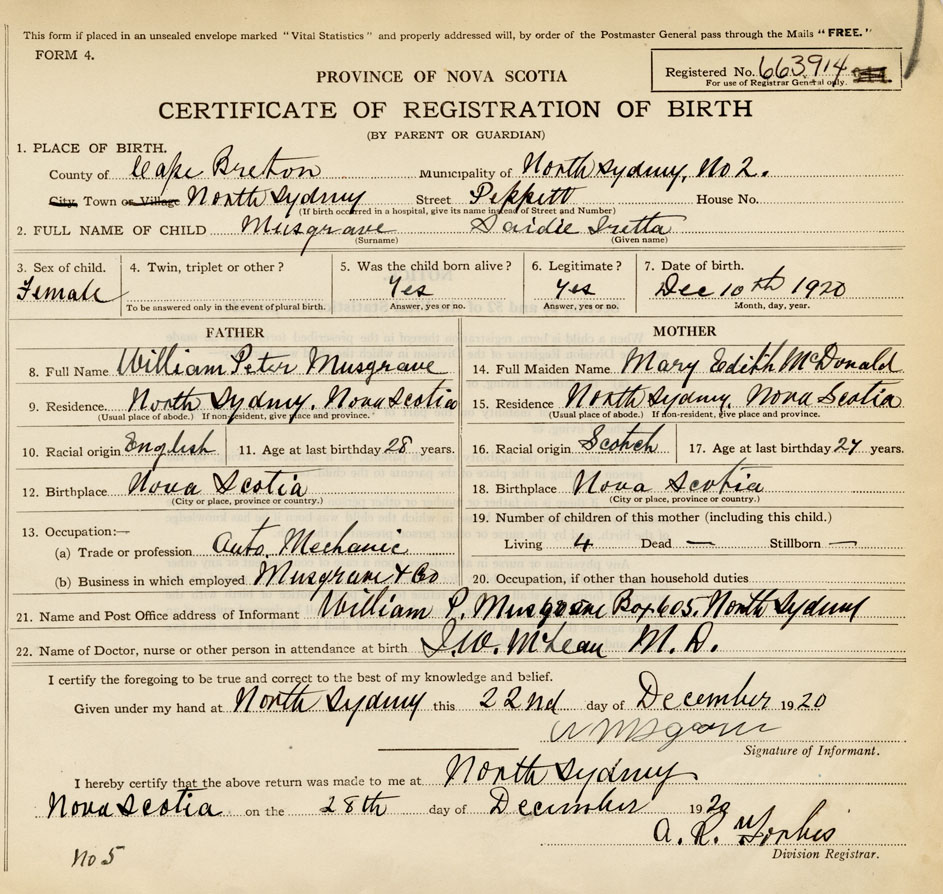 This form if placed in an unsealed envelope marked "Vital Statistics" and properly addressed will, by order of the Postmaster General pass through the Mails "FREE."
FORM 4.
PROVINCE OF NOVA SCOTIA
Registered No. 663914
For use of Registrar General only.
CERTIFICATE OF REGISTRATION OF BIRTH
(BY PARENT OR GUARDIAN)
1. PLACE OF BIRTH.
County of Cape Breton Municipality of North Sydney, No 2.
City, Town or Village North Sydney Street Peppett House No.
(If birth occurred in a hospital, give its name instead of Street and Number)
2. FULL NAME OF CHILD Musgrave Saidie Iretta
(Surname) (Given name)
3. Sex of child. 4. Twin, triplet or other? 5. Was the child born alive? 6. Legitimate? 7. Date of birth.
Female Yes Yes Dec 10th 1920
To be answered only in the event of plural birth. Answer, yes or no. Answer, yes or no. Month, day, year.
FATHER MOTHER
8. Full Name William Peter Musgrave 14. Full Maiden Name Mary Edith McDonald
9. Residence. North Sydney, Nova Scotia 15. Residence North Sydney, Nova Scotia
(Usual place of abode.) If non-resident, give place and province. (Usual place of abode.) If non-resident, give place and province.
10. Racial origin English 11. Age at last birthday 28 years. 16. Racial origin Scotch 17. Age at last birthday 27 years.
12. Birthplace Nova Scotia 18. Birthplace Nova Scotia
(City or place, province or country.) (City or place, province or country.)
13. Occupation:— 19. Number of children of this mother (including this child.)
(a) Trade or profession Auto. Mechanic Living 4 Dead — Stillborn —
(b) Business in which employed Musgrave & Co 20. Occupation, if other than household duties
21. Name and Post Office address of Informant William P. Musgrave Box 605. North Sydney
22. Name of Doctor, nurse or other person in attendance at birth J.W. McLean M.D.
I certify the foregoing to be true and correct to the best of my knowledge and belief.
Given under my hand at North Sydney this 22nd day of December 1920
Signature of Informant.
I hereby certify that the above return was made to me at North Sydney
Nova Scotia on the 28th day of December 1920
A. R. Forbes
Division Registrar.
No 5